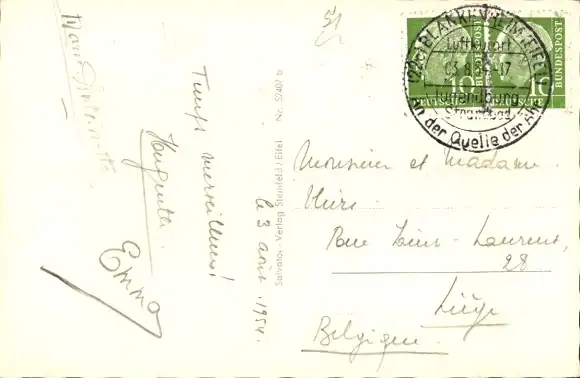 51
Temps merveilleux!
le 3 août 1954.
Huguette.
Emma
Salvator-Verlag Steinfeld / Eifel Nr. 5240/b
(22c) BLANKENHEIM (EIFEL)
Luftkurort
03.8.54-17
Jugendburg
Strandbad
An der Quelle der Ahr
10 10
DEUTSCHE
DEUTSCHE
BUNDESPOST
BUNDESPOST
Monsieur et Madame
Rue Louis-Laurent,
28
Liége
Belgique.